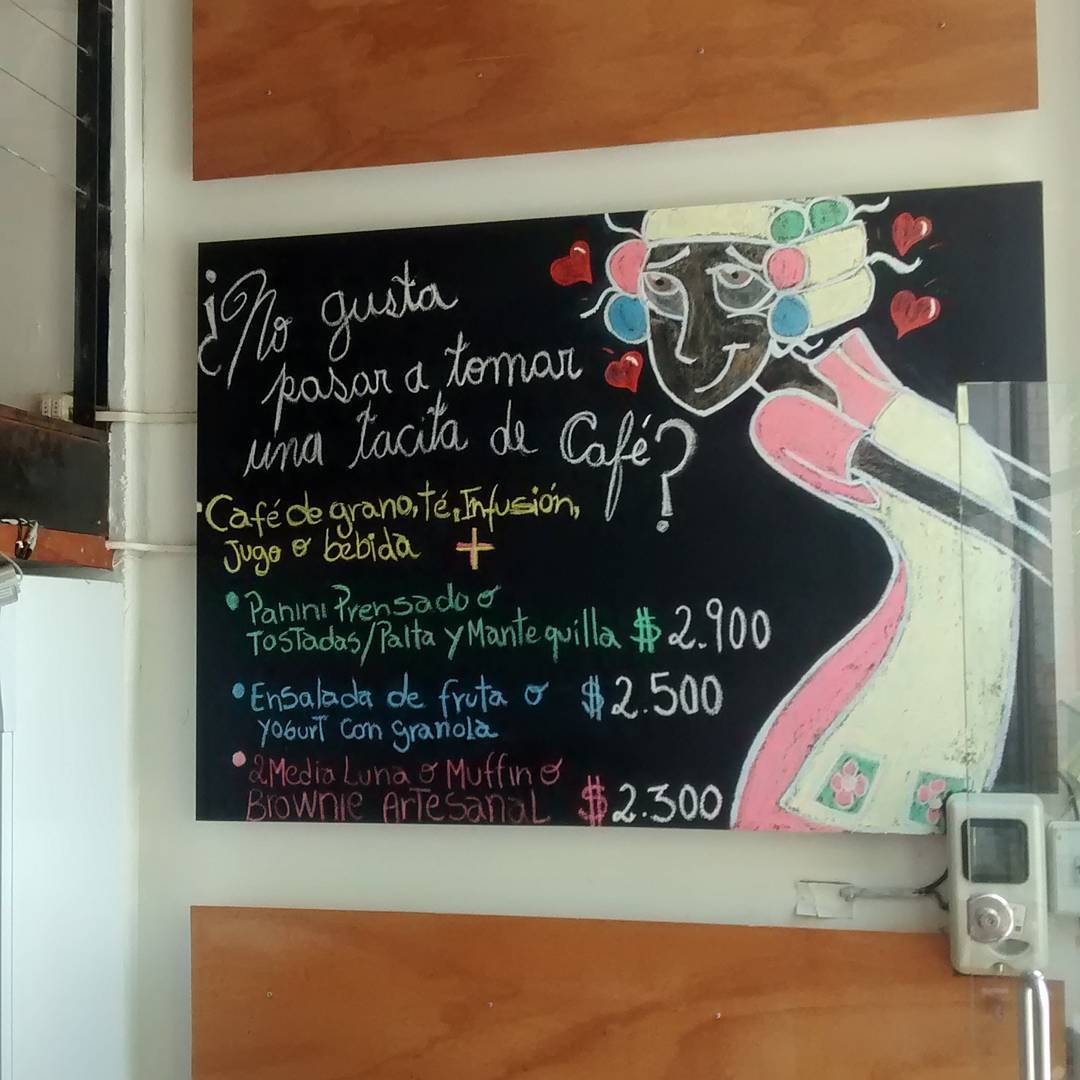 ¿¡No gusta
pasar a tomar
una tacita de Café?
• Café de grano, té, Infusión,
Jugo o bebida +
• Panini Prensado o
Tostadas/Palta y Mantequilla $2.900
• Ensalada de fruta o $2.500
yogurt con granola
• 2 Media Luna o Muffin o
Brownie Artesanal $2.300